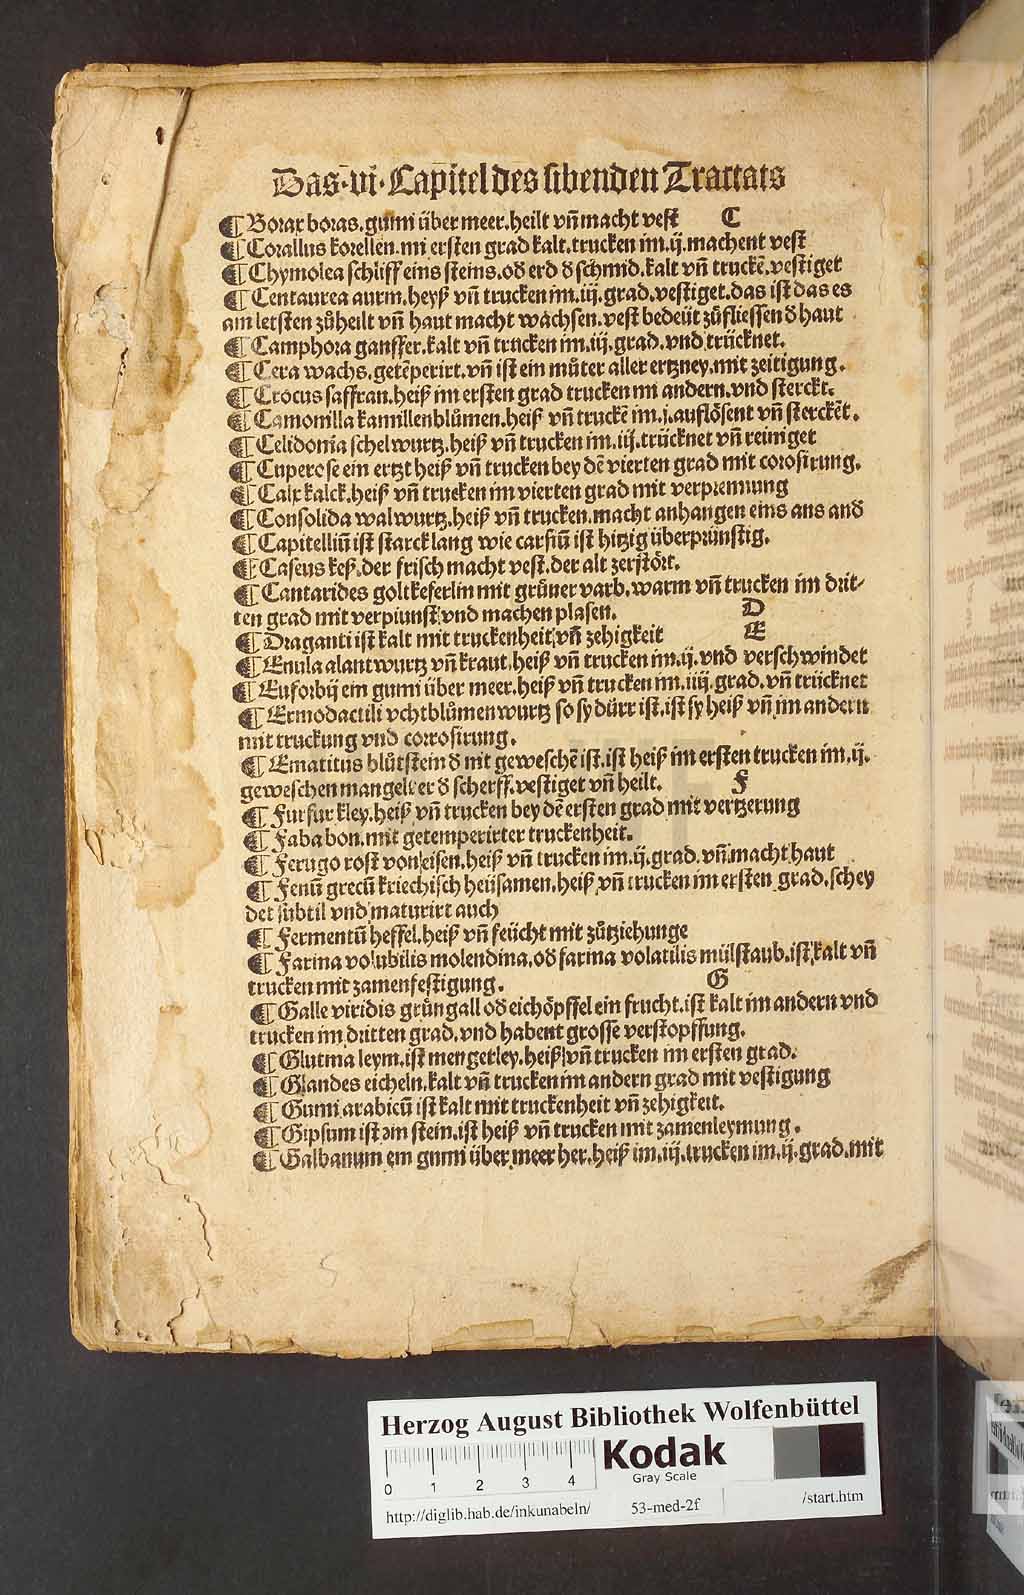 Das·vi·Capitel des sibenden Tractats
¶ Borax boras. gumi über meer. heilt vn̄ macht vest C
¶ Corallus korellen. im ersten grad kalt. trucken im. ij. machent vest
¶ Chymolea schliff eins steins. od erd d schmid. kalt vn̄ truckē. vestiget
¶ Centaurea aurin. heyß vn̄ trucken im. iij. grad. vestiget. das ist das es
am letsten zůheilt vn̄ haut macht wachsen. vest bedeüt zůfliessen d haut
¶ Camphora ganffer. kalt vn̄ trucken im. iij. grad. vnd trücknet.
¶ Cera wachs. getēperirt. vn̄ ist ein můter aller ertzney. mit zeitigung.
¶ Crocus saffran. heiß im ersten grad trucken im andern. vnd sterckt.
¶ Camomilla kamillenblůmen. heiß vn̄ truckē im. j. auflösent vn̄ sterckēt.
¶ Celidonia schelwurtz. heiß vn̄ trucken im. iij. trücknet vn̄ reiniget
¶ Cuperose ein ertzt heiß vn̄ trucken bey dē vierten grad mit corosirung.
¶ Calx kalck. heiß vn̄ trucken im vierten grad mit verprennung
¶ Consolida walwurtz. heiß vn̄ trucken. macht anhangen eins ans and
¶ Capitelliū ist starck lang wie carfiū ist hitzig überprünstig.
¶ Caseus keß. der frisch macht vest. der alt zerstört.
¶ Cantarides goltkeferlin mit grůner varb. warm vn̄ trucken im drit-
ten grad mit verprunst vnd machen plasen. D
¶ Draganti ist kalt mit truckenheit vn̄ zehigkeit E
¶ Enula alantwurtz vn̄ kraut. heiß vn̄ trucken im. ij. vnd verschwindet
¶ Euforbij ein gumi über meer. heiß vn̄ trucken im. iiij. grad. vn̄ trücknet
¶ Ermodactili vchtblůmenwurtz so sy dürr ist. ist sy heiß vn̄ im andern
mit truckung vnd corrosirung.
¶ Ematitus blůtstein d nit geweschē ist. ist heiß im ersten trucken im. ij.
geweschen mangelt er d scherff. vestiget vn̄ heilt. F
¶ Furfur kley. heiß vn̄ trucken bey dē ersten grad mit vertzerung
¶ Faba bon. mit getemperirter truckenheit.
¶ Ferugo rost von eisen. heiß vn̄ trucken im. ij. grad. vn̄ macht haut
¶ Fenū grecū kriechisch heüsamen. heiß vn̄ trucken im ersten grad. schey
det subtil vnd maturirt auch
¶ Fermentū heffel. heiß vn̄ feücht mit zůtziehunge
¶ Farina volubilis molendina. od farina volatilis mülstaub. ist kalt vn̄
trucken mit zamenfestigung. G
¶ Galle viridis grůngall od eichöpffel ein frucht. ist kalt im andern vnd
trucken im dritten grad. vnd habent grosse verstopffung.
¶ Glutina leym. ist mengerley. heiß vn̄ trucken im ersten grad.
¶ Glandes eicheln. kalt vn̄ trucken im andern grad mit vestigung
¶ Gumi arabicū ist kalt mit truckenheit vn̄ zehigkeit.
¶ Gipsum ist ein stein. ist heiß vn̄ trucken mit zamenleymung.
¶ Galbanum ein gumi über meer her. heiß im. iij. trucken im. ij. grad. mit
Herzog August Bibliothek Wolfenbüttel
Kodak
Gray Scale
0 1 2 3 4
http://diglib.hab.de/inkunabeln/ 53-med-2f /start.htm